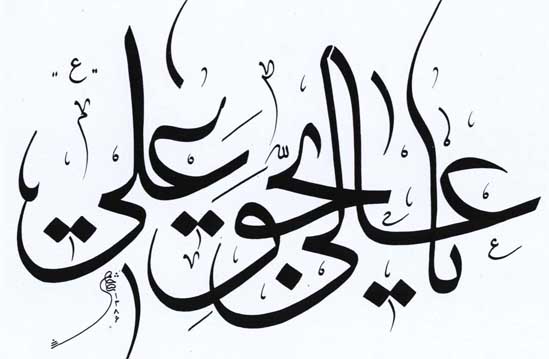 يا عالي بحقِّ علي "ع"